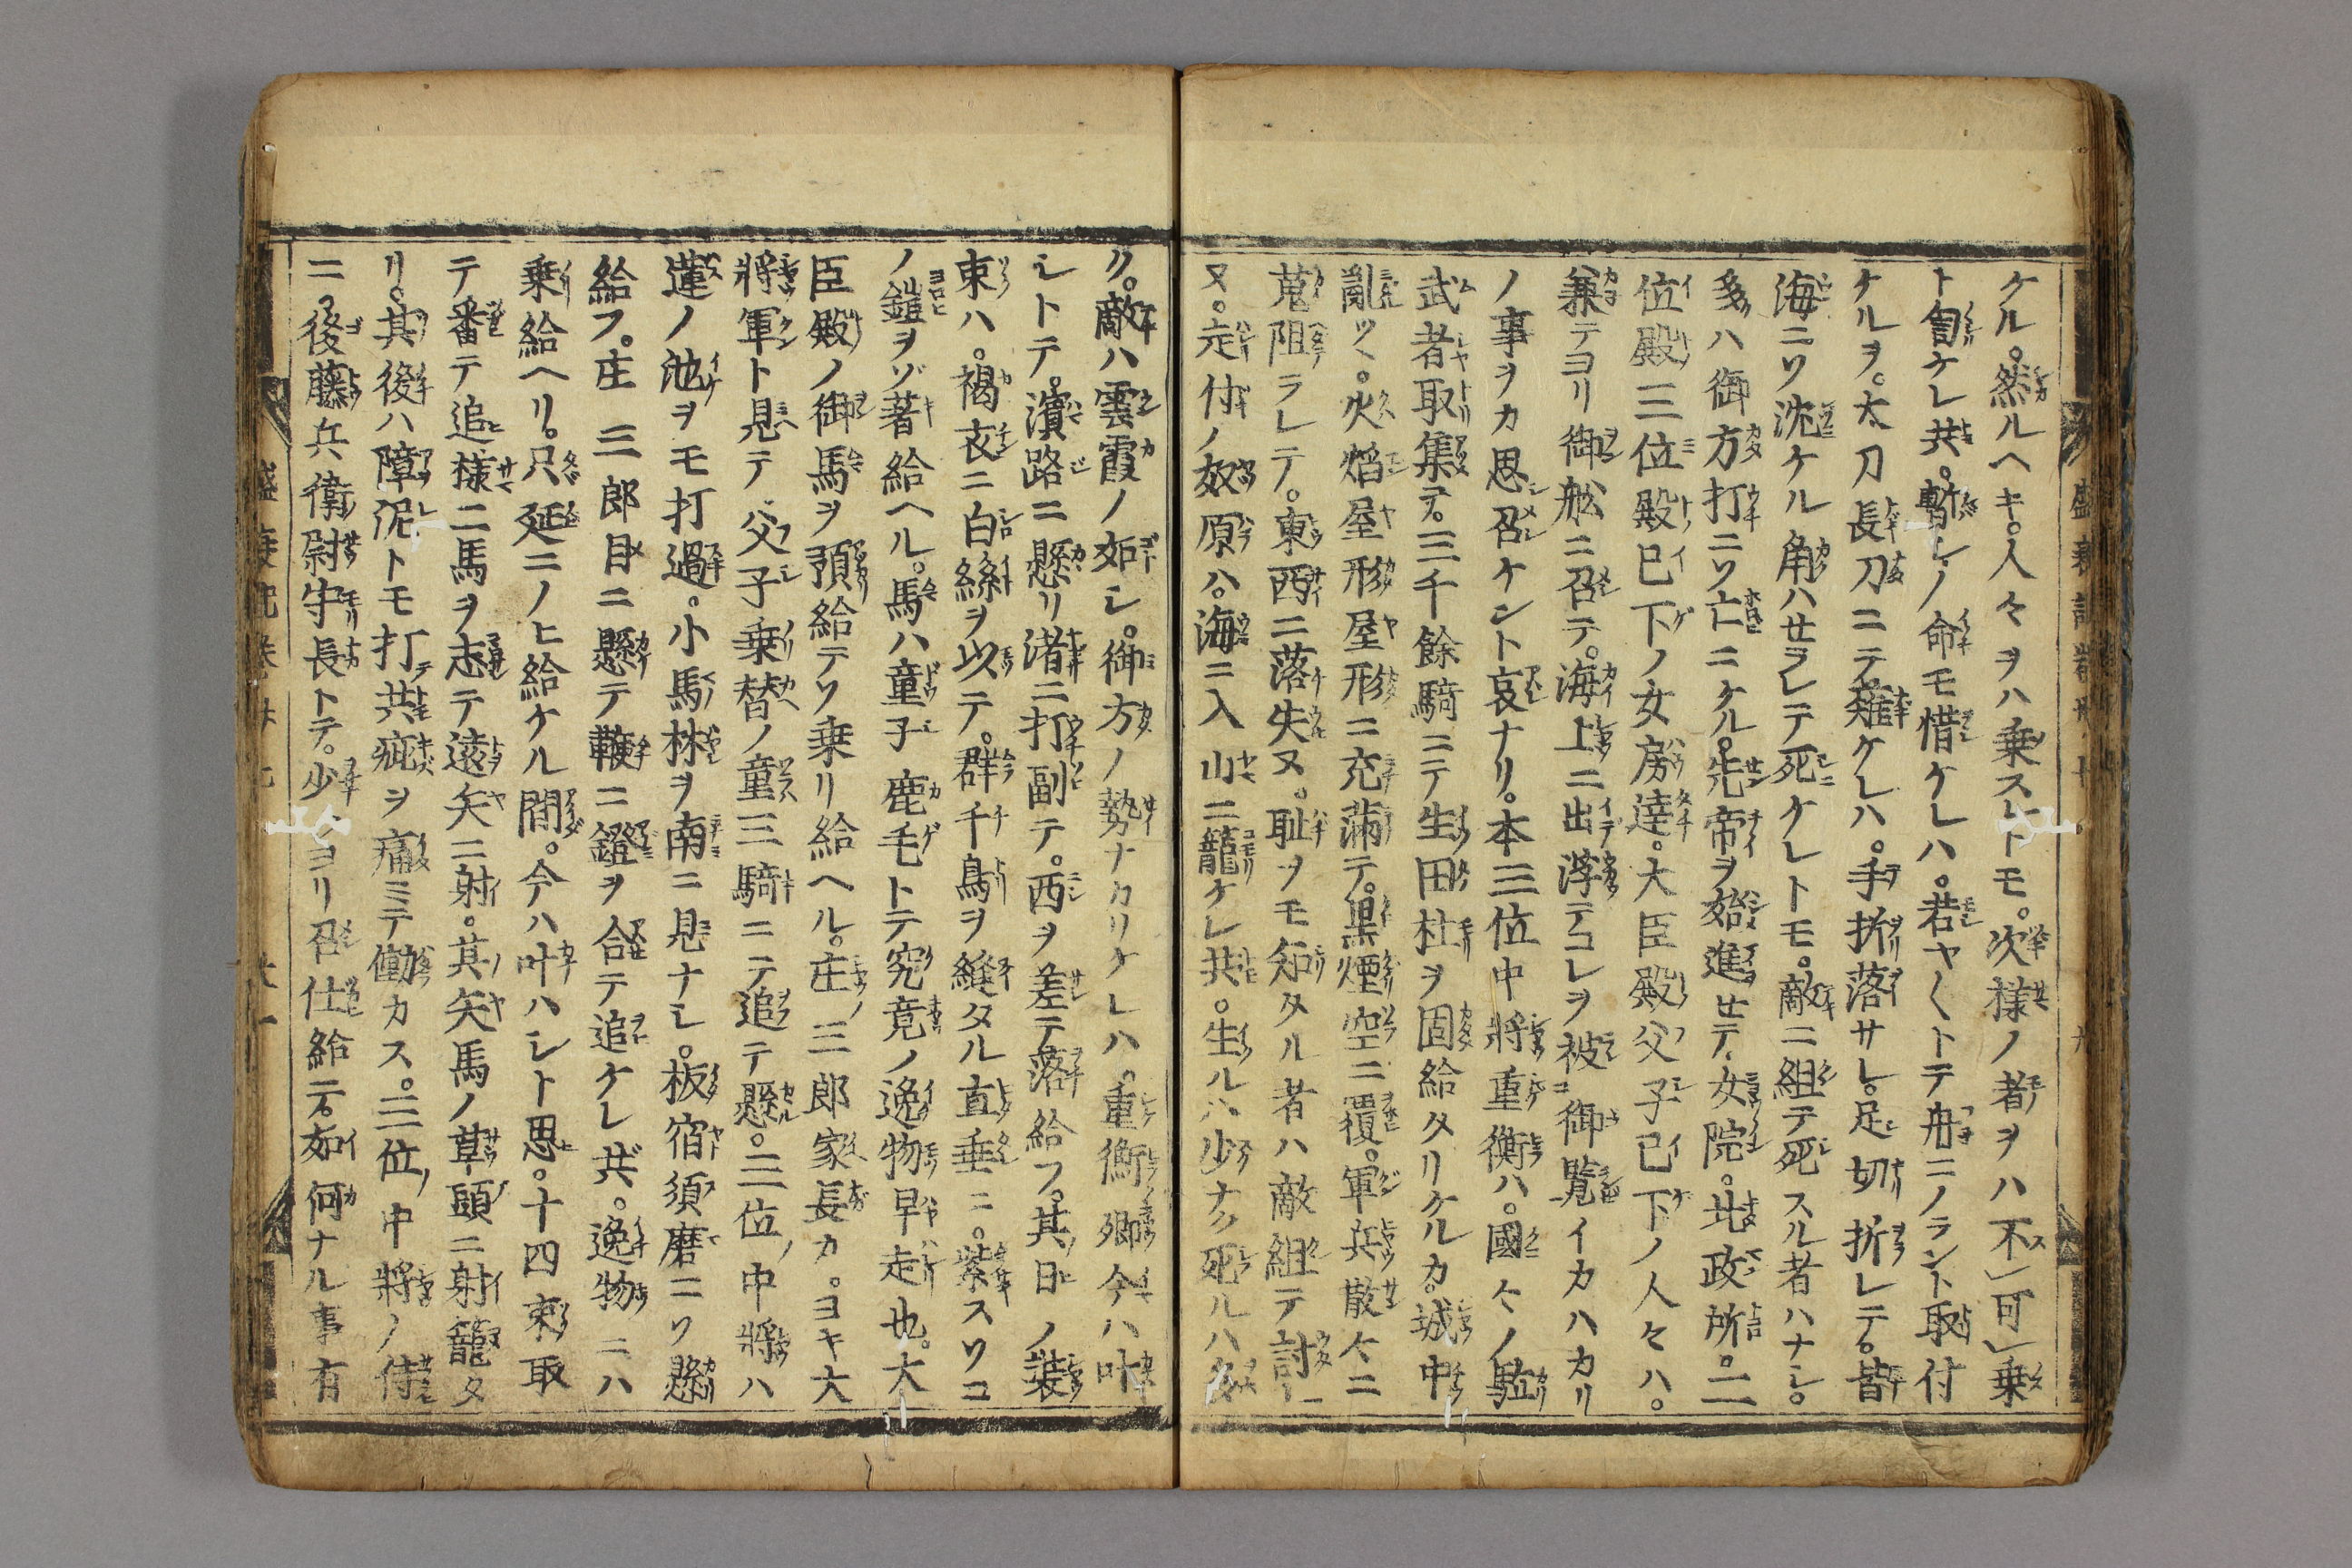 ケル。然ルヘキ。人々ヲハ乗スレトモ。次様ノ者ヲハ不可乗
ト匐ケレ共。暫シノ命モ惜ケレハ。若ヤ〱トテ舟ニノラント取付
ケルヲ。太刀長刀ニテ薙ケレハ。手折落サレ。足切折レテ。皆
海ニソ沈ケル角ハセラレテ死ケレトモ。敵ニ組テ死スル者ハナシ。
多ハ御方打ニソ亡ニケル。先帝ヲ始進セテ。女院。北政所。二
位殿三位殿已下ノ女房達。大臣殿父子已下ノ人々ハ。
兼テヨリ御舩ニ召テ。海上ニ出浮テコレヲ被御覧イカハカリ
ノ事ヲカ思召ケント哀ナリ。本三位中將重衡ハ。國々ノ駈
武者取集テ。三千餘騎ニテ生田杜ヲ固給タリケルカ。城中
亂ツヽ。火焰屋形屋形ニ充滿テ。黒煙空ニ覆。軍兵散々ニ
蒐阻ラレテ。東西ニ落失ヌ。恥ヲモ知タル者ハ敵組テ討レ
ヌ。走付ノ奴原ハ。海ニ入山ニ籠ケレ共。生ルハ少ナク死ルハ多
ク。敵ハ雲霞ノ如シ。御方ノ勢ナカリケレハ。重衡卿今ハ叶
シトテ。濱路ニ懸リ渚ニ打副テ。西ヲ差テ落給フ。其日ノ裝
束ハ。褐衣ニ白絲ヲ以テ。群千鳥ヲ縫タル直垂ニ。紫スソコ
ノ鎧ヲソ著給ヘル。馬ハ童子鹿毛トテ究竟ノ逸物早走也。大
臣殿ノ御馬ヲ預給テソ乗リ給ヘル。庄三郎家長カ。ヨキ大
將軍ト見テ父子乗替ノ童三騎ニテ追テ懸。三位中將ハ
蓮ノ池ヲモ打過。小馬林ヲ南ニ見ナシ。板宿須磨ニソ懸
給フ。庄三郎目ニ懸テ鞭ニ鐙ヲ合テ追ケレ共。逸物ニハ
乗給ヘリ。只延ニノヒ給ケル間。今ハ叶ハシト思。十四束取
テ番テ追樣ニ馬ヲ志テ遠矢ニ射。其矢馬ノ草頭ニ射籠タ
リ。其後ハ障泥トモ打共疵ヲ痛ミテ働カス。三位中將ノ侍
ニ後藤兵衛尉守長トテ。少ヨリ召仕給テ。如何ナル事有